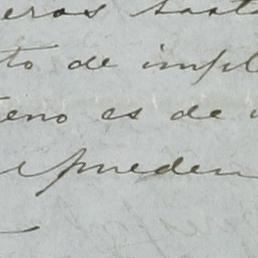 eros
to de impl
eno es de
pueden